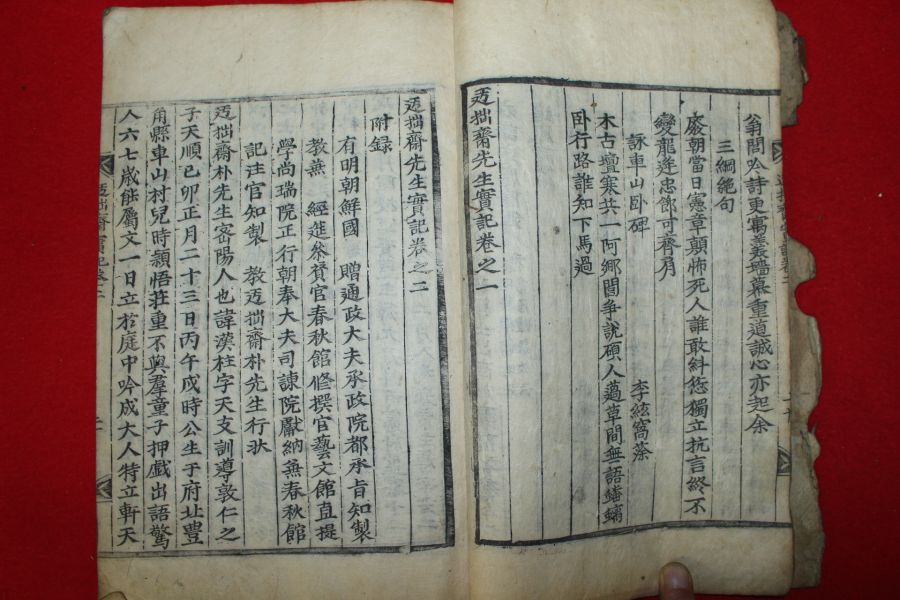 翁閒吟詩更寓羹墻慕重道誠心亦起余
三綱絶句
廢朝當日憲章顛怖死人誰敢糾愆獨立抗言終不
變龍逄忠節可齊肩
詠車山卧碑
李絃窩棨
木古壇寒共一阿鄉閭爭說碩人薖草間無語蟠螭
卧行路誰知下馬過
迃拙齋先生實記卷之一
迃拙齋先生實記卷之二
附録
有明朝鮮國 贈通政大夫承政院都承旨知製
教兼 經筵叅贊官春秋館修撰官藝文館直提
學尚瑞院正行朝奉大夫司諫院獻納兼春秋館
記注官知製 教迃拙齋朴先生行狀
迃拙齋朴先生密陽人也諱漢柱字天支訓導敦仁之
子天順己卯正月二十三日丙午戌時公生于府址豊
角縣車山村兒時頴悟莊重不與羣童子押戲出語驚
人六七歲能屬文一日立於庭中吟成大人特立軒天
迃拙齋實記卷二